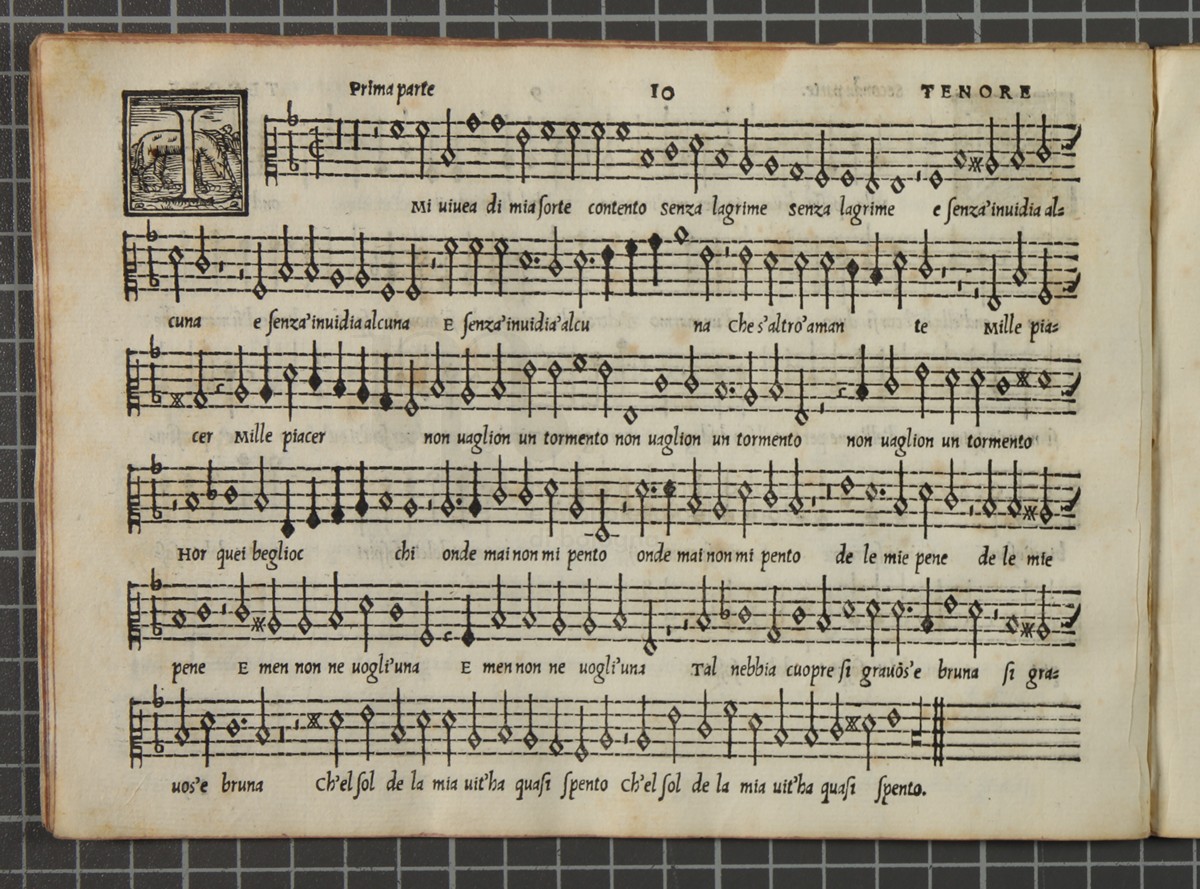 Prima parte 10 TENORE
I
Mi uiuea di mia sorte contento senza lagrime senza lagrime e senza'inuidia al=
cuna e senza'inuidia alcuna E senza'inuidia'alcu na Che s'altro'aman te Mille pia=
cer Mille piacer non uaglion un tormento non uaglion un tormento non uaglion un tormento
Hor quei beglioc chi onde mai non mi pento onde mai non mi pento de le mie pene de le mie
pene E men non ne uogli'una E men non ne uogli'una Tal nebbia cuopre si grauos'e bruna si gra=
uos'e bruna Ch'el sol de la mia uit'ha quasi spento Ch'el sol de la mia uit'ha quasi spento.